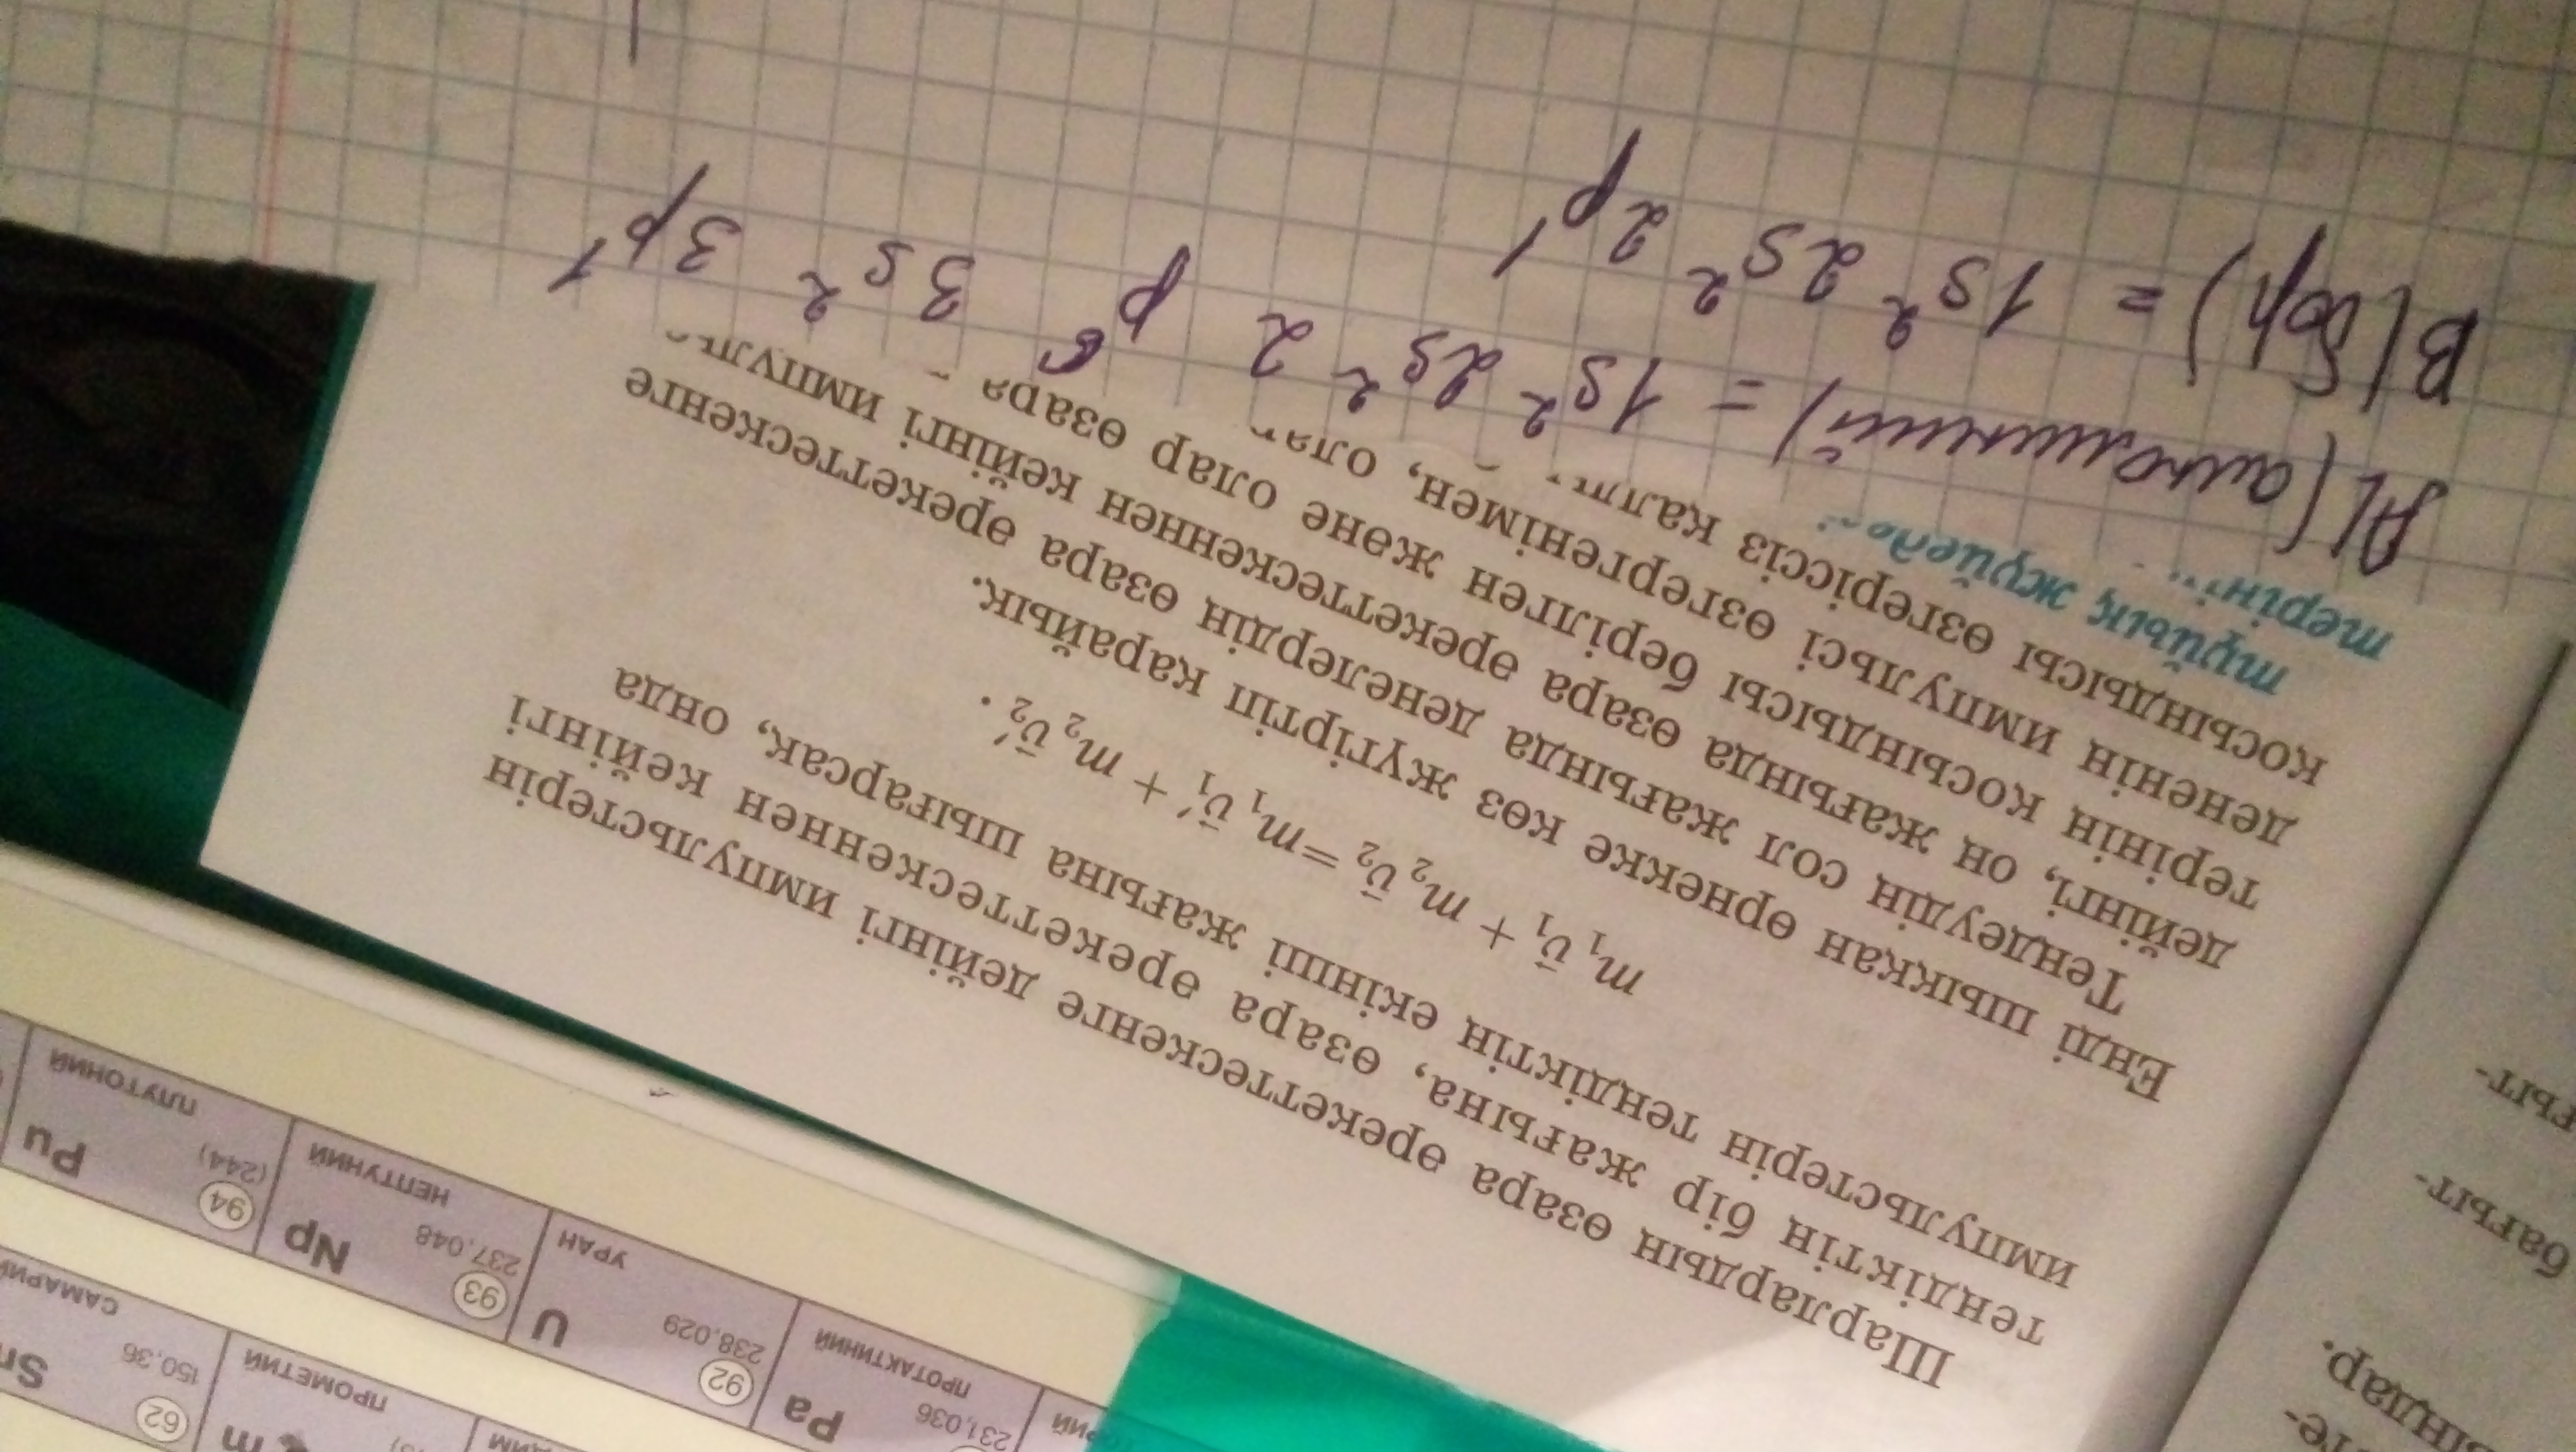 Шарлардың өзара әрекеттескенге дейінгі импульстерін
теңдіктің бір жағына, өзара әрекеттескеннен кейінгі
импульстерін теңдіктің екінші жағына шығарсақ, онда
m₁v⃗₁ + m₂v⃗₂ = m₁v⃗₁′ + m₂v⃗₂′.
Енді шыққан өрнекке көз жүгіртіп қарайық.
Теңдеудің сол жағында денелердің өзара әрекеттескенге
дейінгі, оң жағында өзара әрекеттескеннен кейінгі
терінің қосындысы берілген және олар өзара
дененің импульсі өзгергенімен,
қосындысы өзгеріссіз
тұйық
Al (алюминий) = 1s² 2s² 2p⁶ 3s² 3p¹
B (бор) = 1s² 2s² 2p¹
ғыт-
бағыт-
ындар.
Pu
94
(244)
ПЛУТОНИЙ
Np
93
237,048
НЕПТУНИЙ
U
92
238,029
УРАН
Pa
231,036
ПРОТАКТИНИЙ
62
150,36
САМАРИЙ
ПРОМЕТИЙ